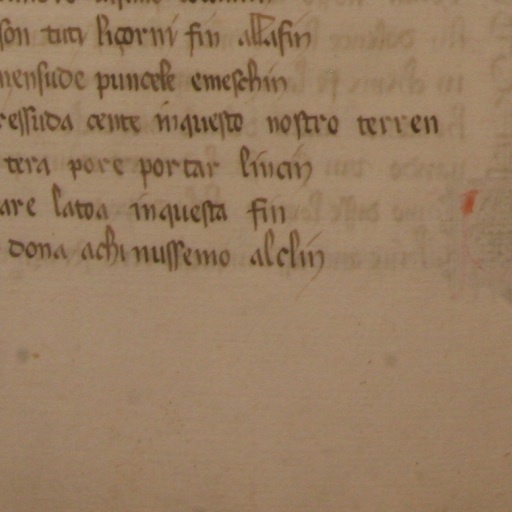 son tuti liçorni fin allasin
mensude puncele emeschin
ressuda cente inquesto nostro terren
tera pore portar lincin
are latoa inquesta fin
dona achi nussemo alclin